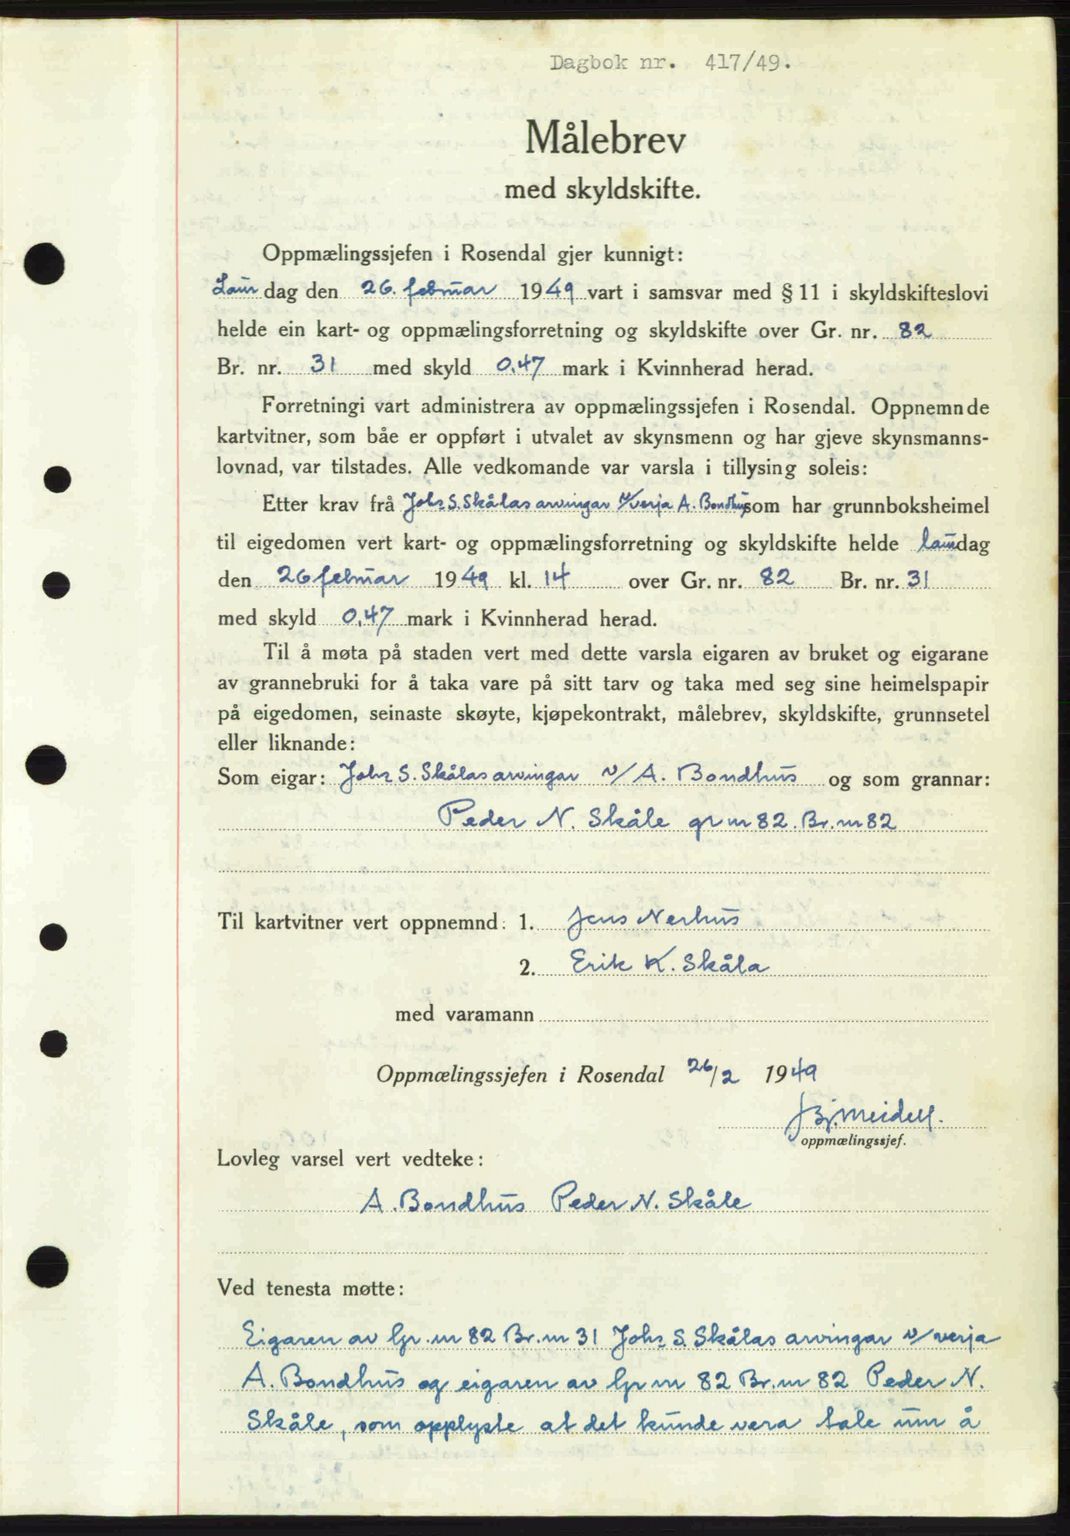 Dagbok nr. 417/49.
Målebrev
med skyldskifte.
Oppmælingssjefen i Rosendal gjer kunnigt:
Laur dag den 26. februar 1949 vart i samsvar med § 11 i skyldskifteslovi
helde ein kart- og oppmælingsforretning og skyldskifte over Gr. nr. 82
Br. nr. 31 med skyld 0,47 mark i Kvinnherad herad.
Forretningi vart administrera av oppmælingssjefen i Rosendal. Oppnemnde
kartvitner, som båe er oppført i utvalet av skynsmenn og har gjeve skynsmanns-
lovnad, var tilstades. Alle vedkomande var varsla i tillysing soleis:
Etter krav frå Johs S. Skålas arvingar v/verja A. Bondhus som har grunnboksheimel
til eigedomen vert kart- og oppmælingsforretning og skyldskifte helde laurdag
den 26 februar 1949 kl. 14 over Gr. nr. 82 Br. nr. 31
med skyld 0,47 mark i Kvinnherad herad.
Til å møta på staden vert med dette varsla eigaren av bruket og eigarane
av grannebruki for å taka vare på sitt tarv og taka med seg sine heimelspapir
på eigedomen, seinaste skøyte, kjøpekontrakt, målebrev, skyldskifte, grunnsetel
eller liknande:
Som eigar: Johs S. Skålas arvingar v/ A. Bondhus og som grannar:
Peder N. Skåle gr nr 82. Br. nr 82
Til kartvitner vert oppnemnd: 1. Jens Nerhus
2. Erik K. Skåla
med varamann
Oppmælingssjefen i Rosendal 26/2 1949
J Bj. Meidell.
oppmælingssjef.
Lovleg varsel vert vedteke:
A. Bondhus Peder N. Skåle
Ved tenesta møtte:
Eigaren av Gr. nr 82 Br. nr 31 Johs S. Skålas arvingar v/ verja
A. Bondhus og eigaren av Gr nr 82 Br. nr 82 Peder N.
Skåle, som opplyste at det kunde vera tale um å